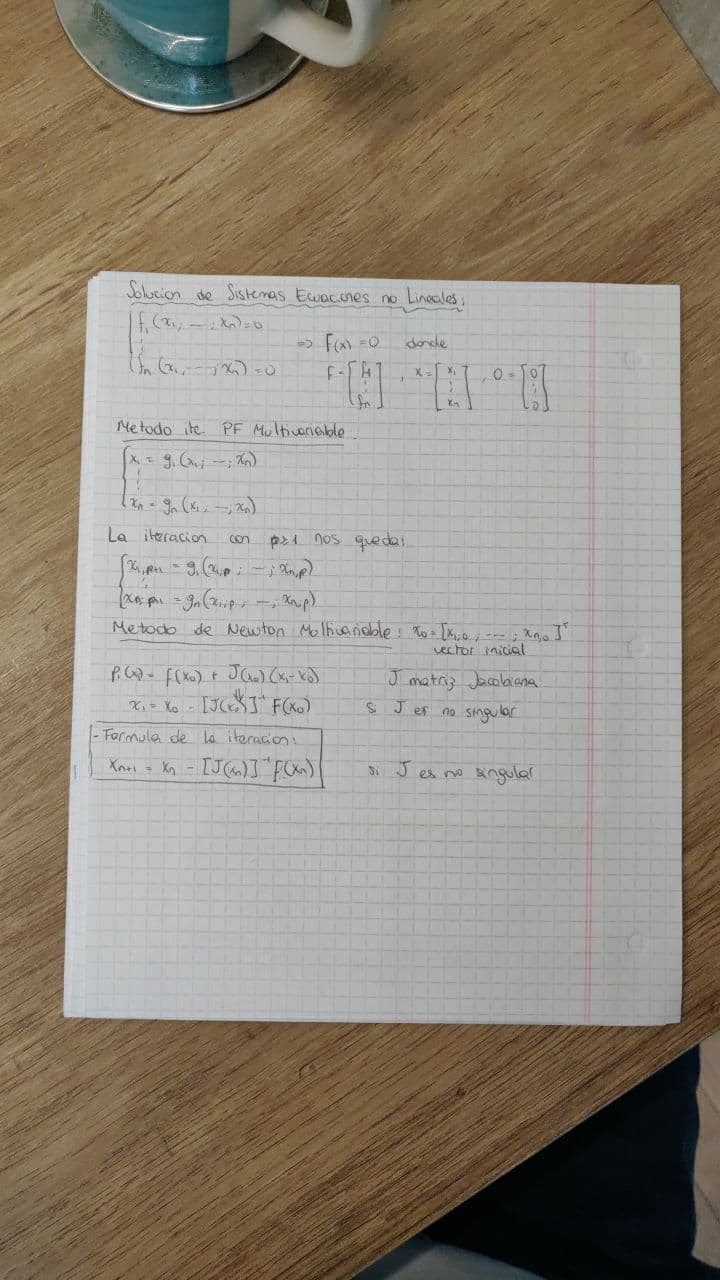 Solucion de Sistemas Ecuaciones no Lineales:
f₁(x₁, — ; xₙ)=0
⋮ => F(x) =0 donde
fₙ (x₁, --- ; xₙ) =0 F = [f₁ ⋮ fₙ] , x = [x₁ ⋮ xₙ] , 0 = [0 ⋮ 0]
Metodo ite. PF Multivariable.
x₁ = g₁ (x₁ ; — ; xₙ)
⋮
xₙ = gₙ (x₁ ; — , xₙ)
La iteracion con p≥1 nos queda:
x₁,ₚ₊₁ = g₁(x₁,ₚ ; — ; xₙ,ₚ)
⋮
xₙ,ₚ₊₁ = gₙ(x₁,ₚ , — , xₙ,ₚ)
Metodo de Newton Multivariable : x₀ = [x₁,₀ , --- ; xₙ,₀]ᵀ
vector inicial
P₁(x) = f(x₀) + J(x₀)(x₁-x₀) J matriz Jacobiana
x₁ = x₀ - [J(x₀)]⁻¹ F(x₀) si J es no singular
- Formula de la iteracion:
xₙ₊₁ = xₙ - [J(xₙ)]⁻¹ F(xₙ) si J es no singular